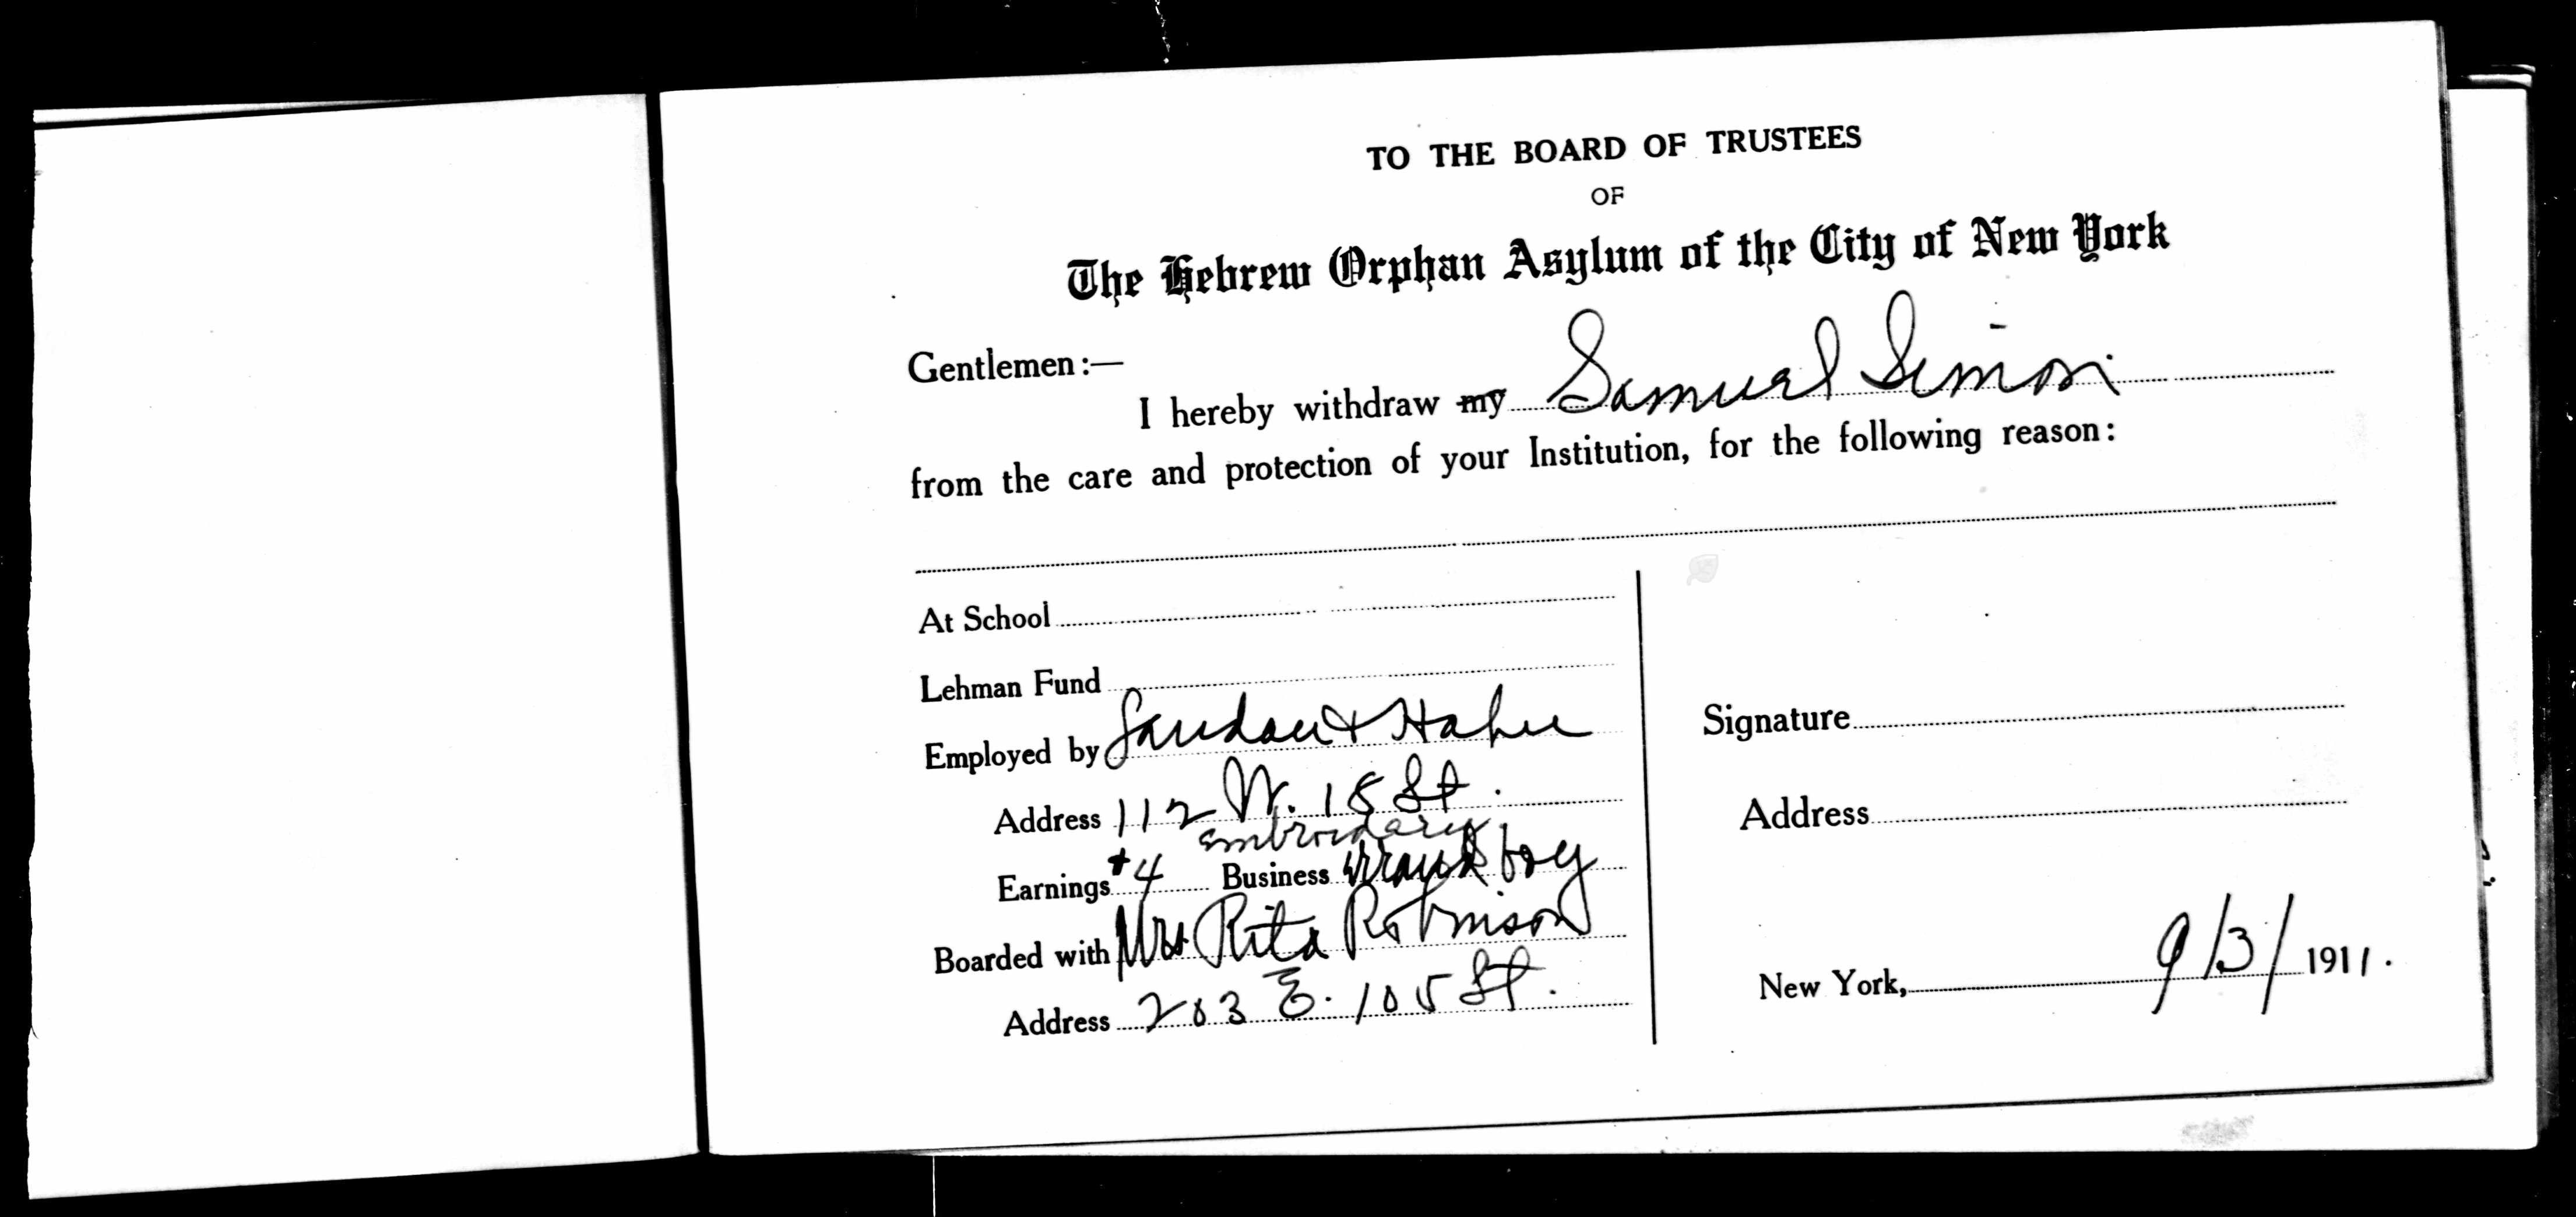 TO THE BOARD OF TRUSTEES
OF
The Hebrew Orphan Asylum of the City of New York
Gentlemen:—
I hereby withdraw my Samuel Simon
from the care and protection of your Institution, for the following reason:
At School
Lehman Fund
Employed by & Hahn
Address 112 W. 18 St.
embroidary
Earnings $4 Business boy
Boarded with Mrs Rita Robinson
Address 203 E. 105 St.
Signature
Address
New York, 9/3/1911.